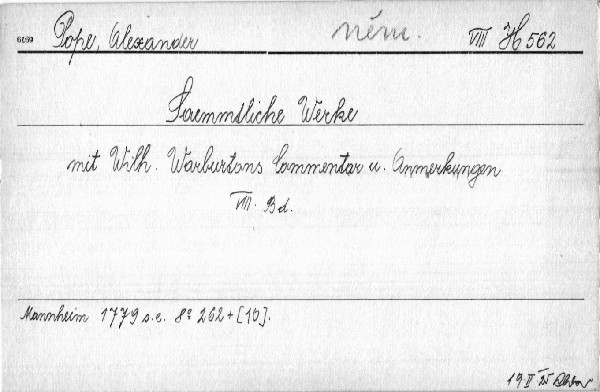 6069 Pope, Alexander něm. VIII H 562
Saemmtliche Werke
mit Wilh. Warburtons Commentar u. Anmerkungen
VIII. Bd.
Mannheim 1779 s.e. 8º 262+[10].
19 II